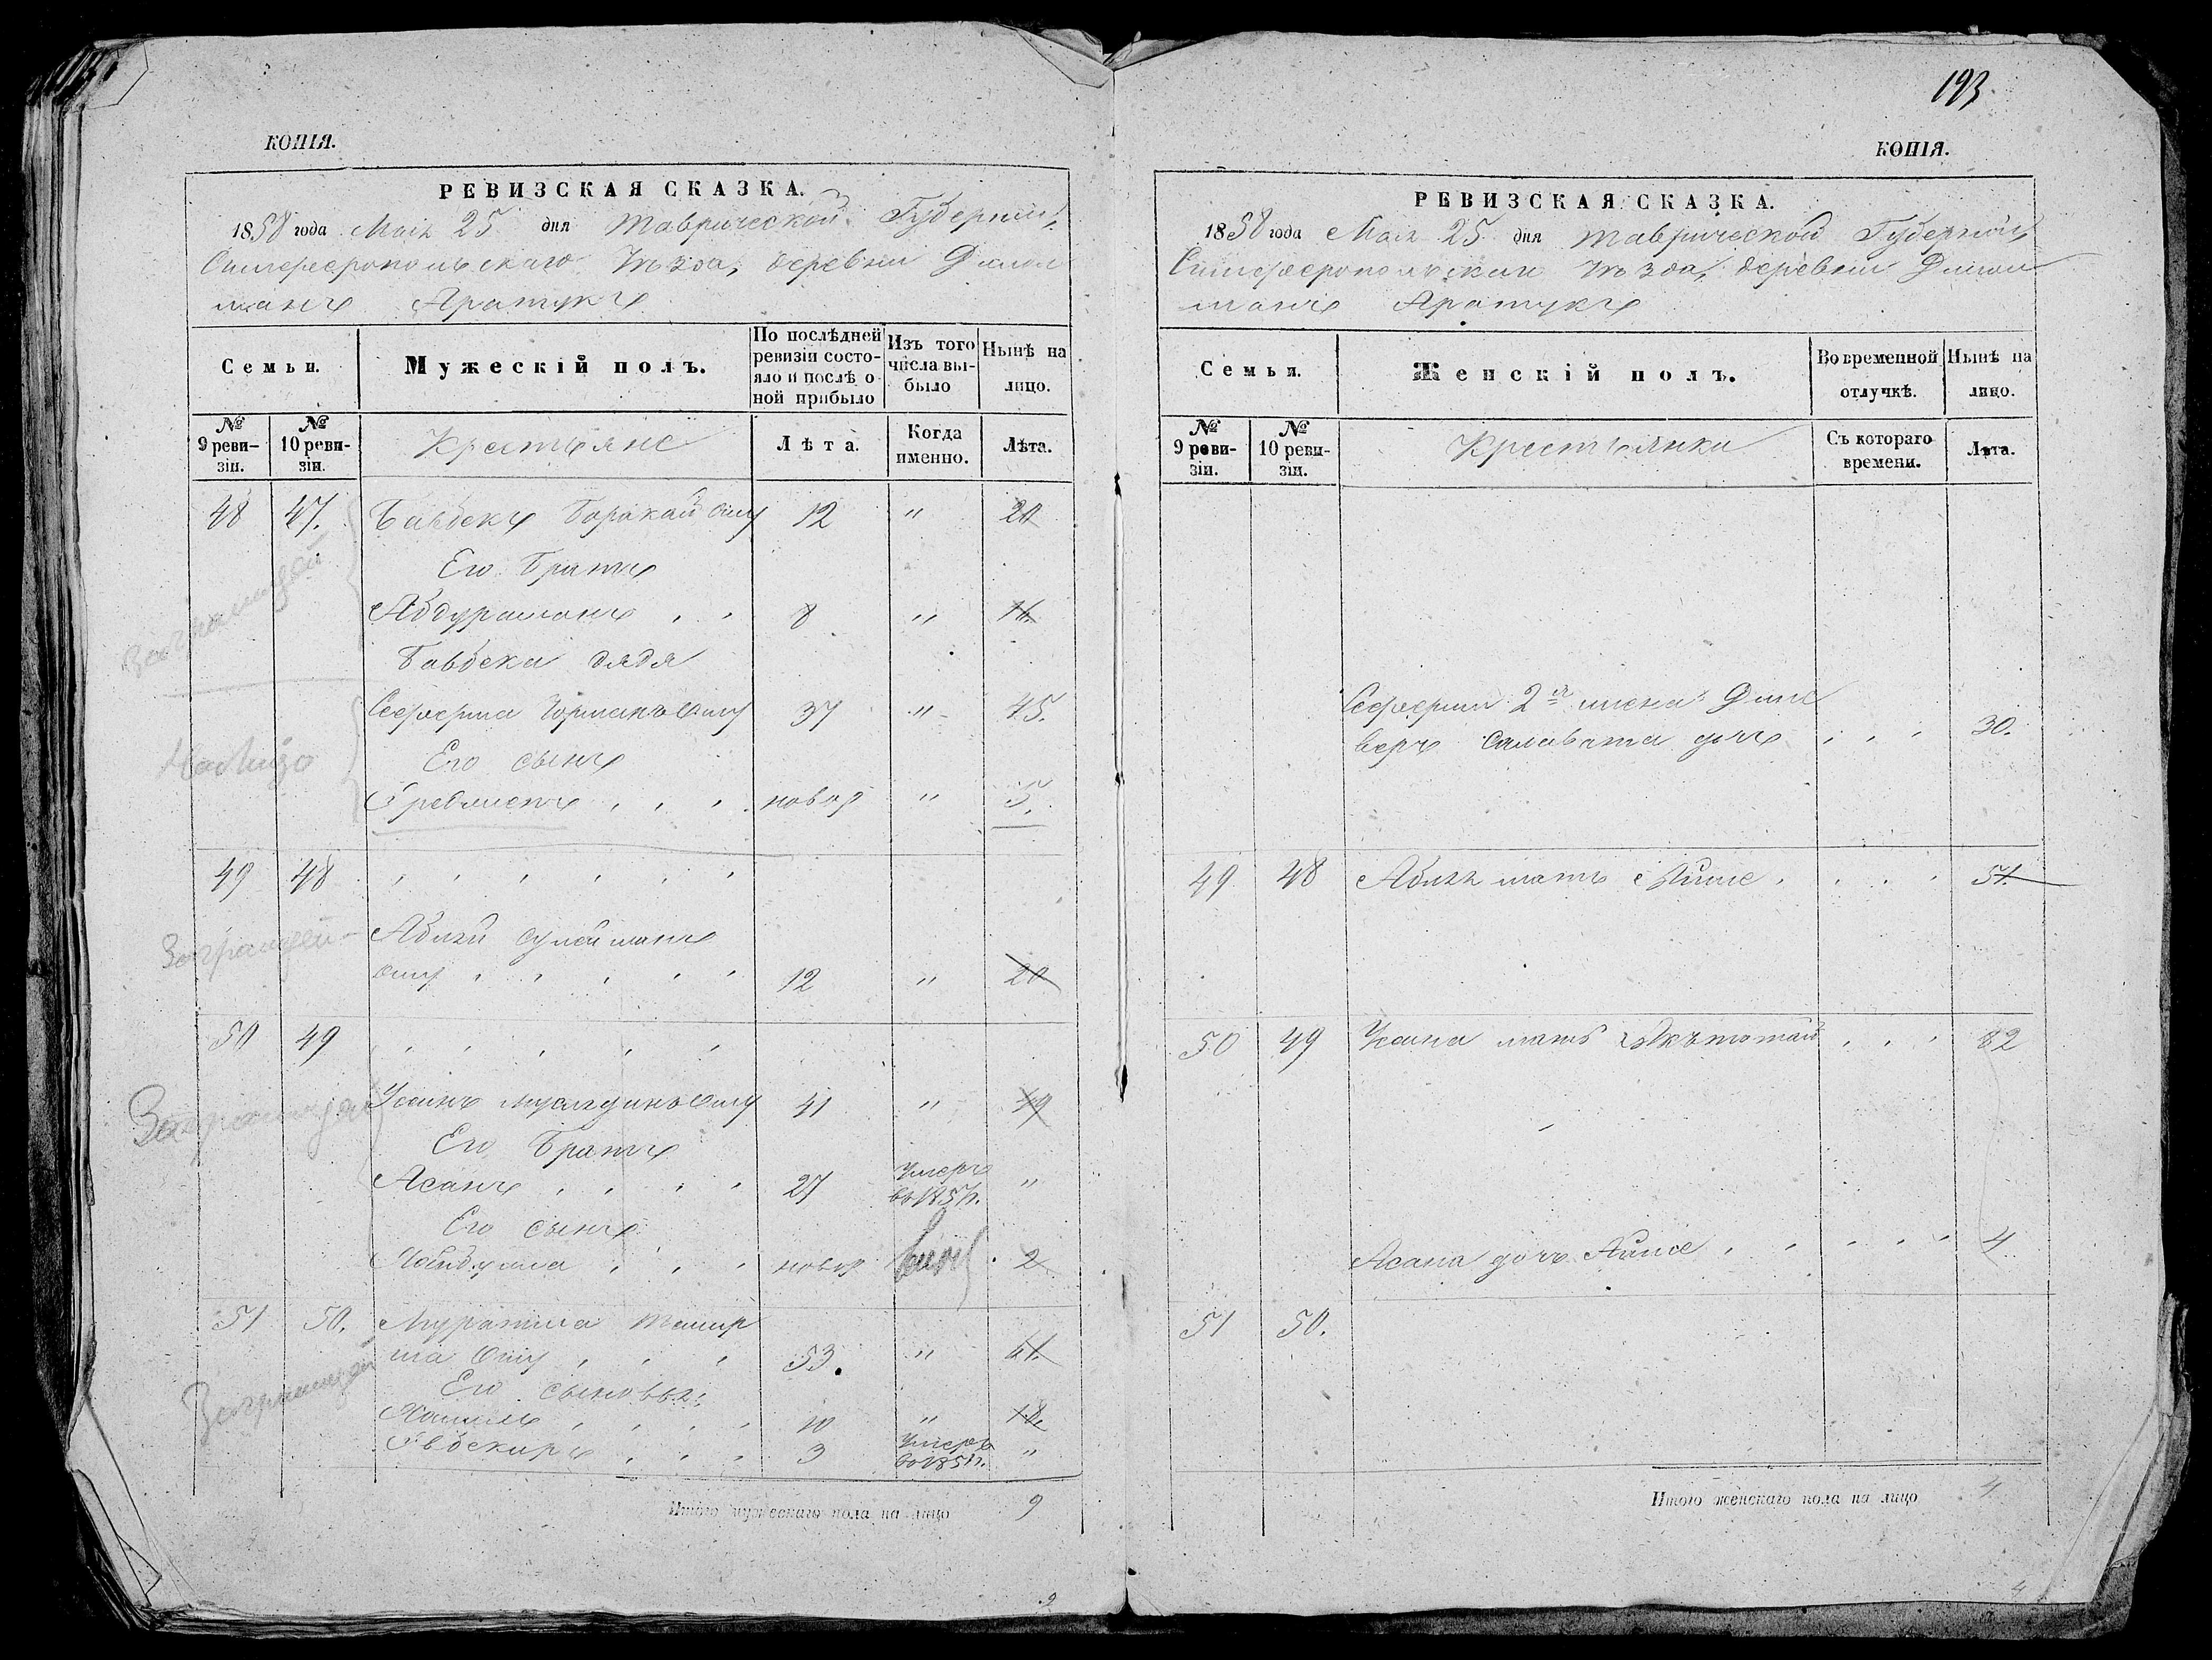 КОПІЯ.
РЕВИЗСКАЯ СКАЗКА.
1858 года Мая 25 дня Таврической Губерніи,
Симферопольскаго Уѣзда, деревни
Аратукъ
Семьи.
Мужескій полъ.
По послѣдней ревизіи состояло и послѣ оной прибыло
Изъ того числа выбыло
Нынѣ на лицо.
№ 9 ревизіи.
№ 10 ревизіи.
Крестьяне
Лѣта.
Когда именно.
Лѣта.
48 47. Бавбекъ оглу 12 " 20
Заграницей
Его братъ
Абдураманъ , , 8 " 16
Бавбека дядя
Сеферша оглу 37 " 45.
На лицо
Его сынъ
, , , новор " 5.
49 48 , , , , , ,
Заграницей
Аблай Сулейманъ
оглу , , , , , 12 " 20
50 49 , , , , ,
Заграницей
Усинъ оглу 41 " 49
Его братъ
Асанъ , , , , 27 Умеръ "
Его сынъ
, , , новор 2
51 50. Муратша Темир
ша оглу , , , 53. " 61.
Заграницей
Его сыновья:
Халилъ , , , , 10 " 18.
, , , 3 Умеръ "
Итого мужескаго пола на лицо 9
9
193
КОПІЯ.
РЕВИЗСКАЯ СКАЗКА.
1858 года Мая 25 дня Таврической Губерніи,
Симферопольскаго Уѣзда, деревни
Аратукъ
Семьи.
Женскій полъ.
Во временной отлучкѣ.
Нынѣ на лицо.
№ 9 ревизіи.
№ 10 ревизіи.
Крестьянки
Съ котораго времени.
Лѣта.
Сеферши 2я жена
Салавата дочь , , , 30.
49 48 мать Айше , , , , 57.
50 49 Усина мать , , , 82
Асана дочь Айше , , , , , 4
51 50.
Итого женскаго пола на лицо 4
4